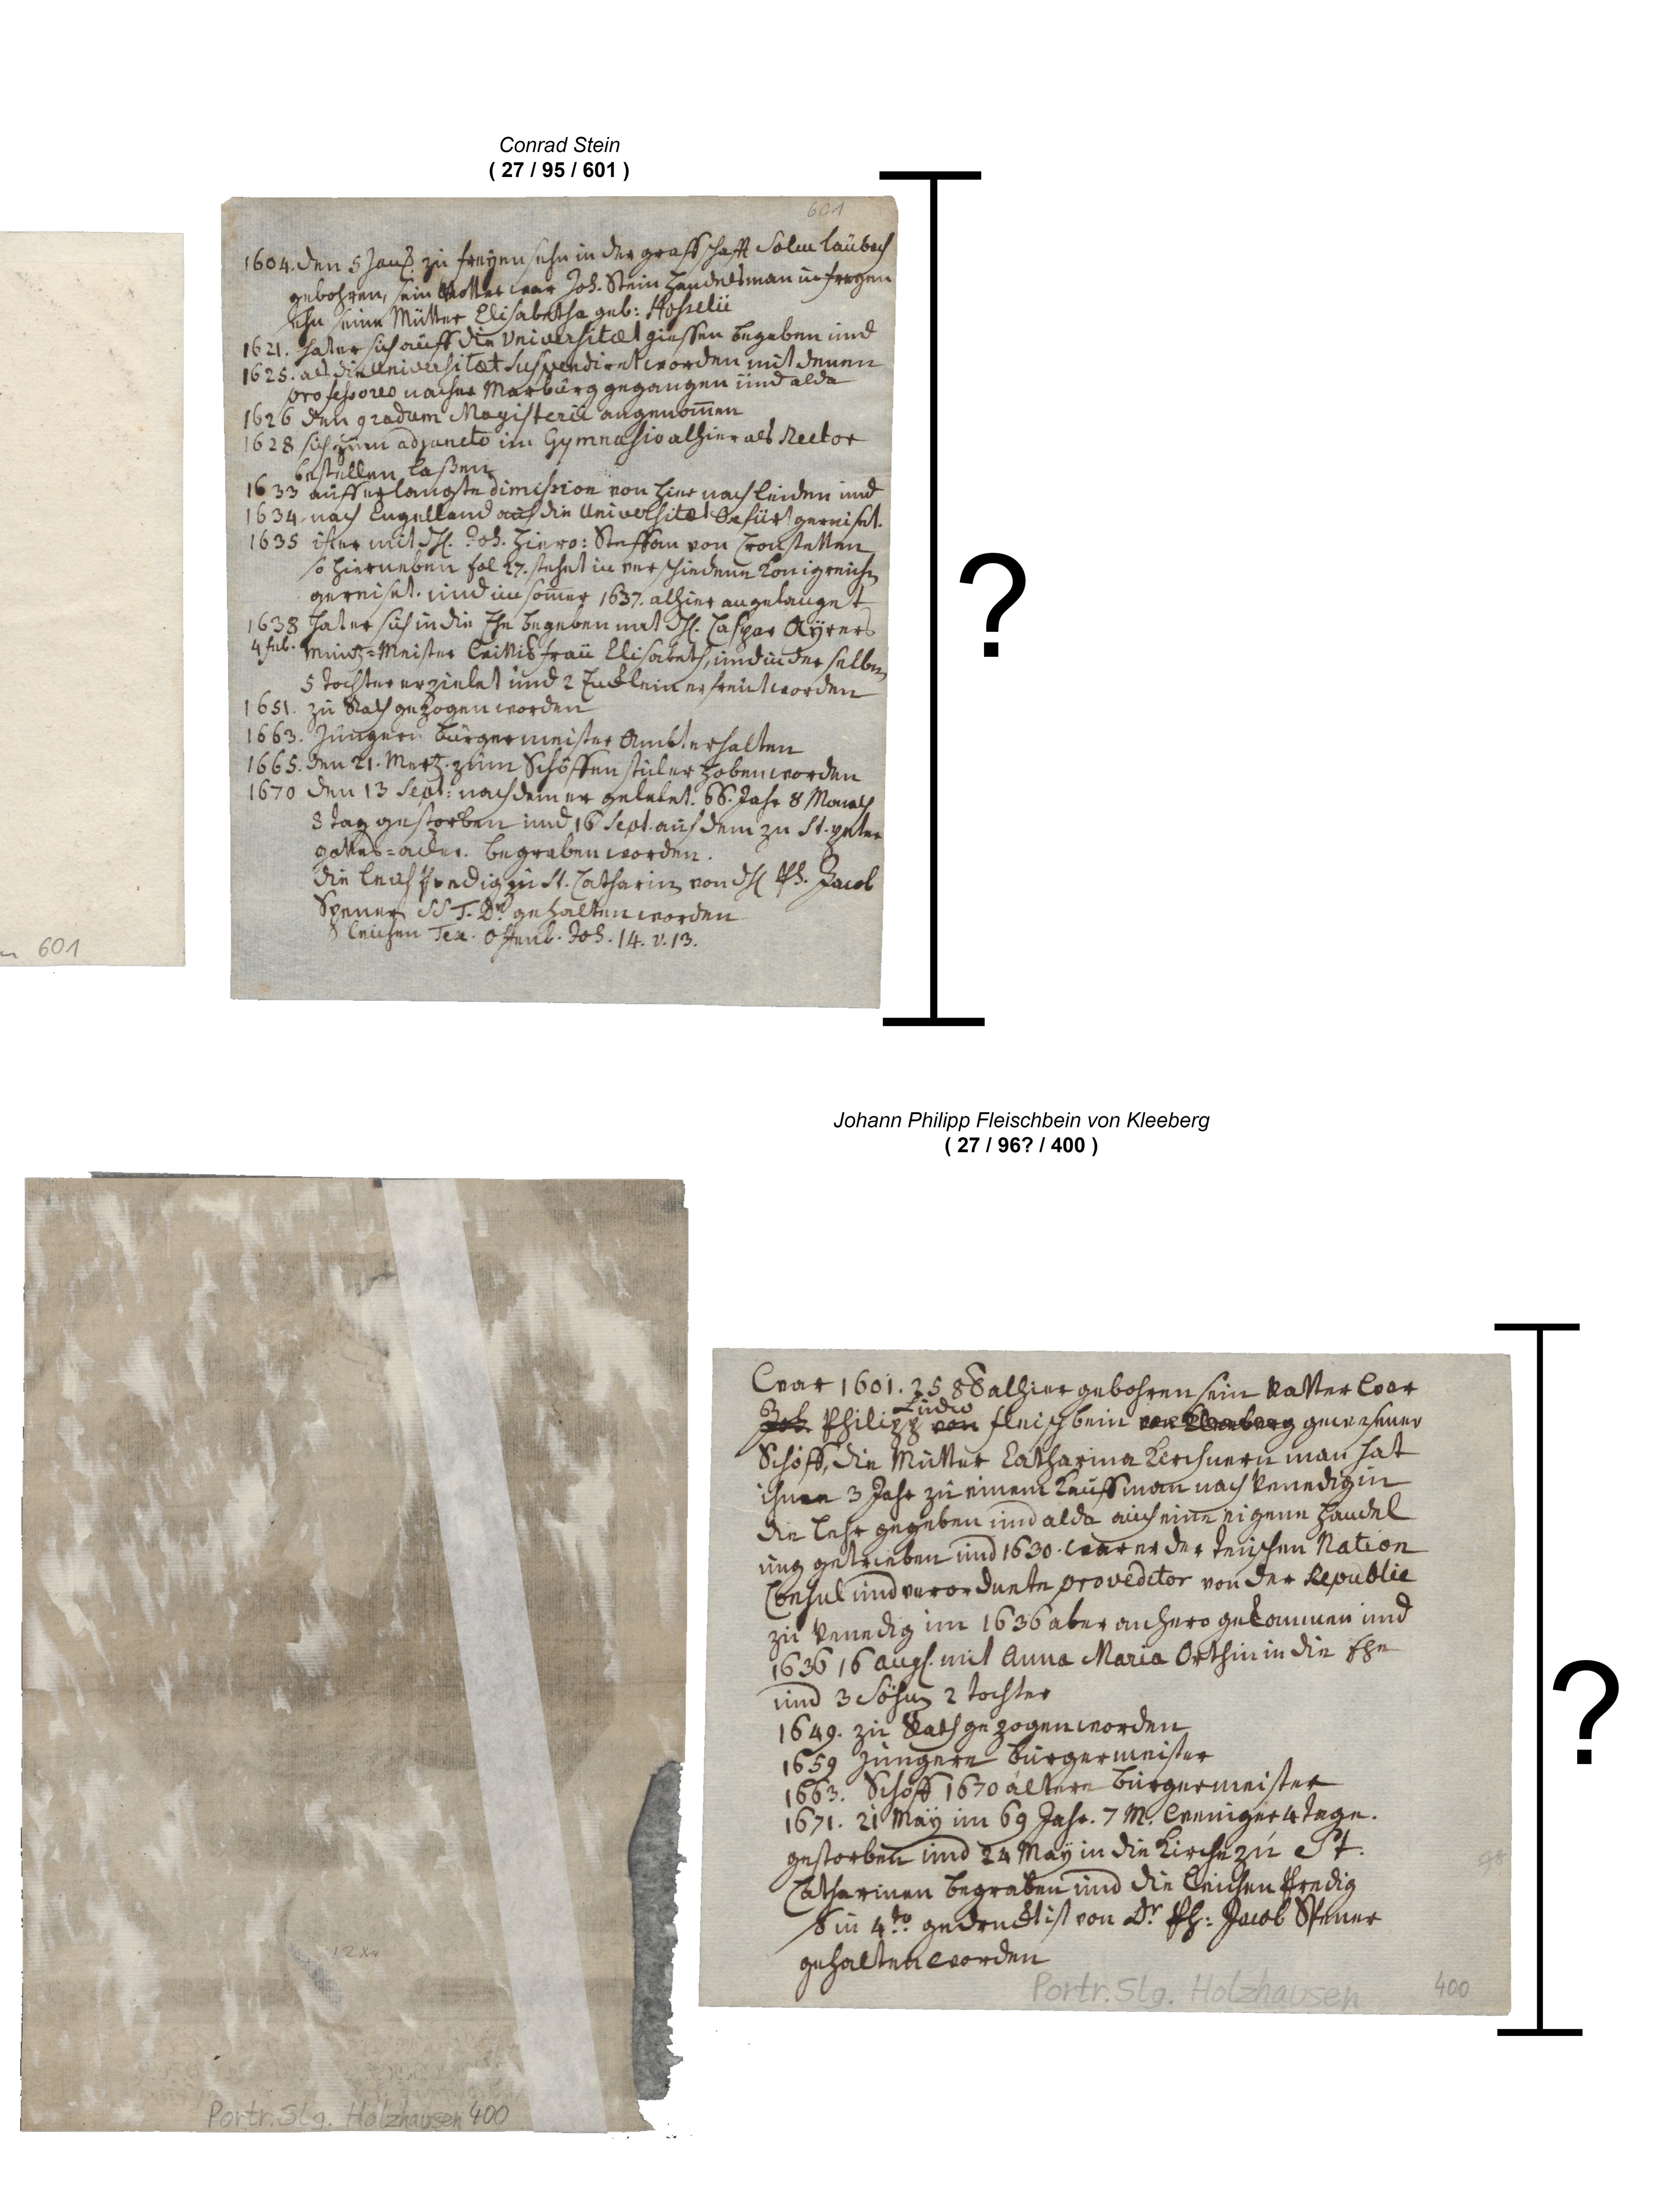 Conrad Stein
( 27 / 95 / 601 )
601
1604. den 5 Jan. zu freyensehn in der graffschafft Solm laübach
gebohren, sein Vatter war Joh. Stein handelsman in freyen
sehn seine Mütter Elisabetha geb: Hosselii
1621. hat er sich auff die Universitæt giessen begeben und
1625. als die Universitæt suspendiret worden mit denen
professores nacher Marbürg gegangen ünd alda
1626 den gradum Magisterii angenom̄en
1628 sich zum adjuncto im Gymnasio alhier als Rector
bestellen laßen
1633 auff erlangte dimission von hier nach leiden und
1634 nach Engelland auf die Universitæt gereiset.
1635 ist er mit H. Joh. Hiero: Steffan von Cronstetten
so hierneben fol 27. stehet in verschiedene Konigreiche
gereiset. und im som̄er 1637. alhier angelanget
1638 hat er sich in die Ehe begeben mit H. Caspar Aÿrers
4 feb. müntz-Meister wittib fraü Elisabeth, und in der selben
5 tochter erzielet und 2 Encklein erfreüt worden
1651. zu Rath gezogen worden
1663. Jungern bürgermeister Ambt erhalten
1665. den 21. Mertz. züm Schöffen stül erhoben worden
1670 den 13 Sept: nachdem er gelebet. 66. Jahr 8 Monath
8 tag gestorben und 16 Sept. auf dem zu St. peter
gottes=acker. begraben worden.
die leich predig zu St. Catharin von H Ph. Jacob
Spener SS T. Dr. gehalten worden
leichen Tex. offenb. Joh. 14. v. 13.
601
?
Johann Philipp Fleischbein von Kleeberg
( 27 / 96? / 400 )
war 1601. 25 8b alhier gebohren sein Vatter war
Joh. Philipp Ludw von fleischbein von Kleeberg gewesener
Schöff, die Mütter Catharina Kerchnern man hat
ihnen 3 Jahr zü einem Kauffman nach Venedig in
die lehr gegeben und alda auch eine eigene handel
ung getrieben und 1630. war er der teüschen Nation
Consul und verordnete proveditor von der Republic
zü Venedig im 1636 aber anhero gekommen und
1636 16 Aug. mit Anna Maria Orthin in die Ehe
und 3 Söhn 2 tochter
1649. zü Rath gezogen worden
1659 Jüngere bürgermeister
1663. Schöff 1670 ältere bürgermeister
1671. 21 Maÿ im 69 Jahr. 7 M. weniger 4 tage.
gestorben und 24 Maÿ in die Kirche zü St.
Catharinen begraben und die leichen predig
so in 4to gedruckt ist von Dr Ph: Jacob Spener
gehalten worden
98
Portr. Slg. Holzhausen 400
?
Portr. Slg. Holzhausen 400